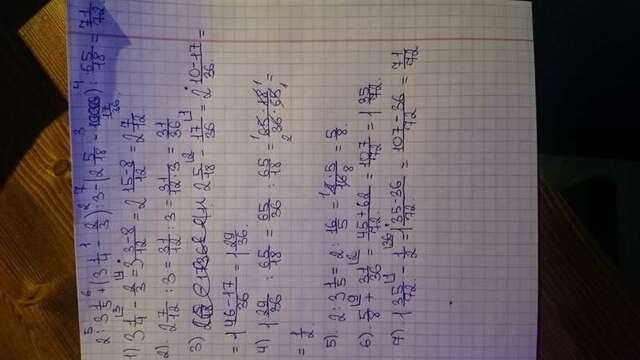 2 : 3 1/5 + (3 1/4 - 2/3) : 3 - (2 5/18 - 17/36) : 65/18 = 71/72
1) 3 1/4 - 2/3 = 3 3-8/12 = 2 15-8/12 = 2 7/12
2) 2 7/12 : 3 = 31/12 : 3 = 31/12·3 = 31/36
3) 2 5/18 - 17/36 = 2 10-17/36 =
= 1 46-17/36 = 1 29/36
4) 1 29/36 : 65/18 = 65/36 : 65/18 = 65·18/36·65 =
= 1/2
5) 2 : 3 1/5 = 2 : 16/5 = 2·5/16 = 5/8
6) 5/8 + 31/36 = 45+62/72 = 107/72 = 1 35/72
7) 1 35/72 - 1/2 = 1 35-36/72 = 107-36/72 = 71/72